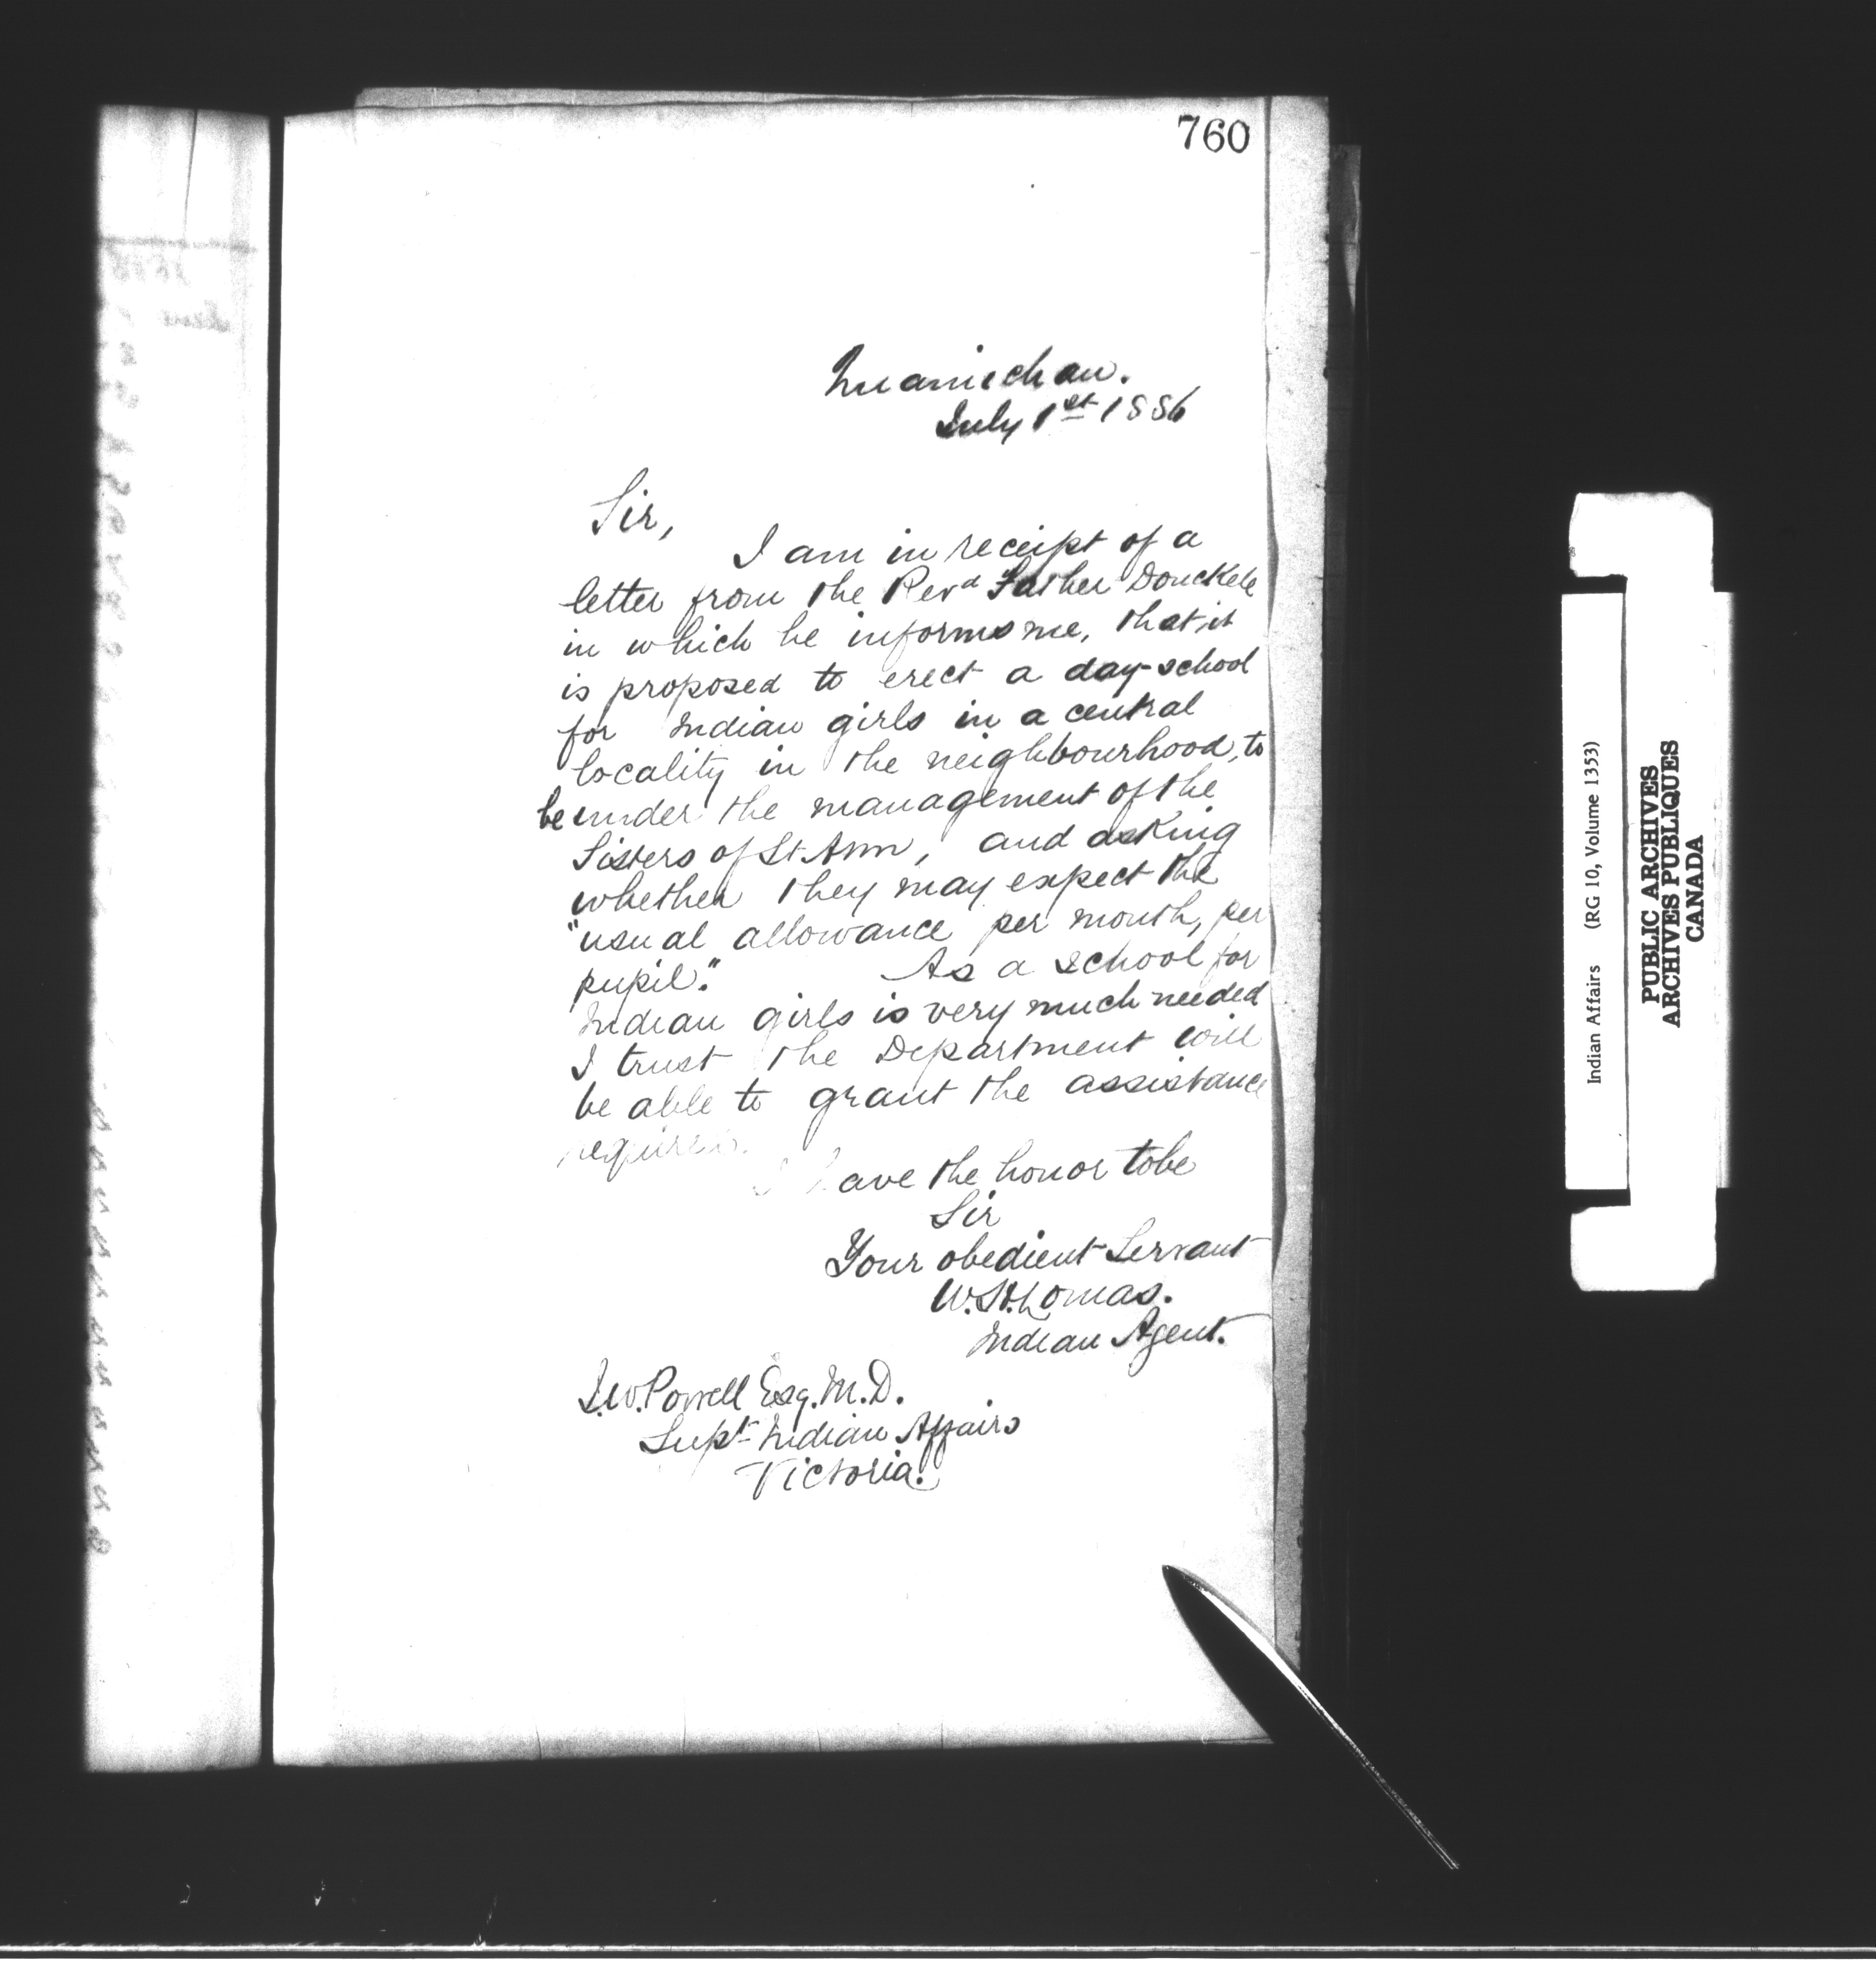 760
Quamichan.
July 1st 1886
Sir,
I am in receipt of a
letter from the Revd Father Donckele
in which he informs me, that it
is proposed to erect a day-school
for Indian girls in a central
locality in the neighbourhood, to
be under the management of the
Sisters of St Ann, and asking
whether they may expect the
"usual allowance per month, per
pupil." As a school for
Indian girls is very much needed
I trust the Department will
be able to grant the assistance
required.
I have the honor to be
Sir
Your obedient Servant
W.H. Lomas.
Indian Agent.
I.W. Powell Esq. M.D.
Supt Indian Affairs
Victoria.
Indian Affairs (RG 10, Volume 1353)
PUBLIC ARCHIVES
ARCHIVES PUBLIQUES
CANADA